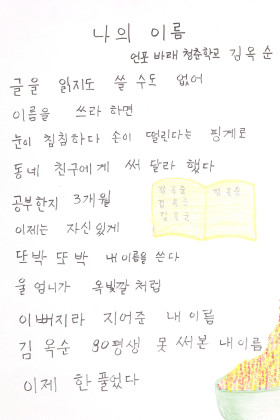 나의 이름
언포 바래 청춘학교 김옥순
글을 읽지도 쓸 수도 없어
이름을 쓰라 하면
눈이 침침하다 손이 떨린다는 핑계로
동네 친구에게 써 달라 했다
공부한지 3개월
이제는 자신있게
또박 또박 내 이름을 쓴다
울 엄니가 옥빛깔 처럼
이뻐지라 지어준 내 이름
김옥순 90평생 못 써본 내 이름
이제 한 풀었다
김옥순 김옥순
김옥순
김옥순